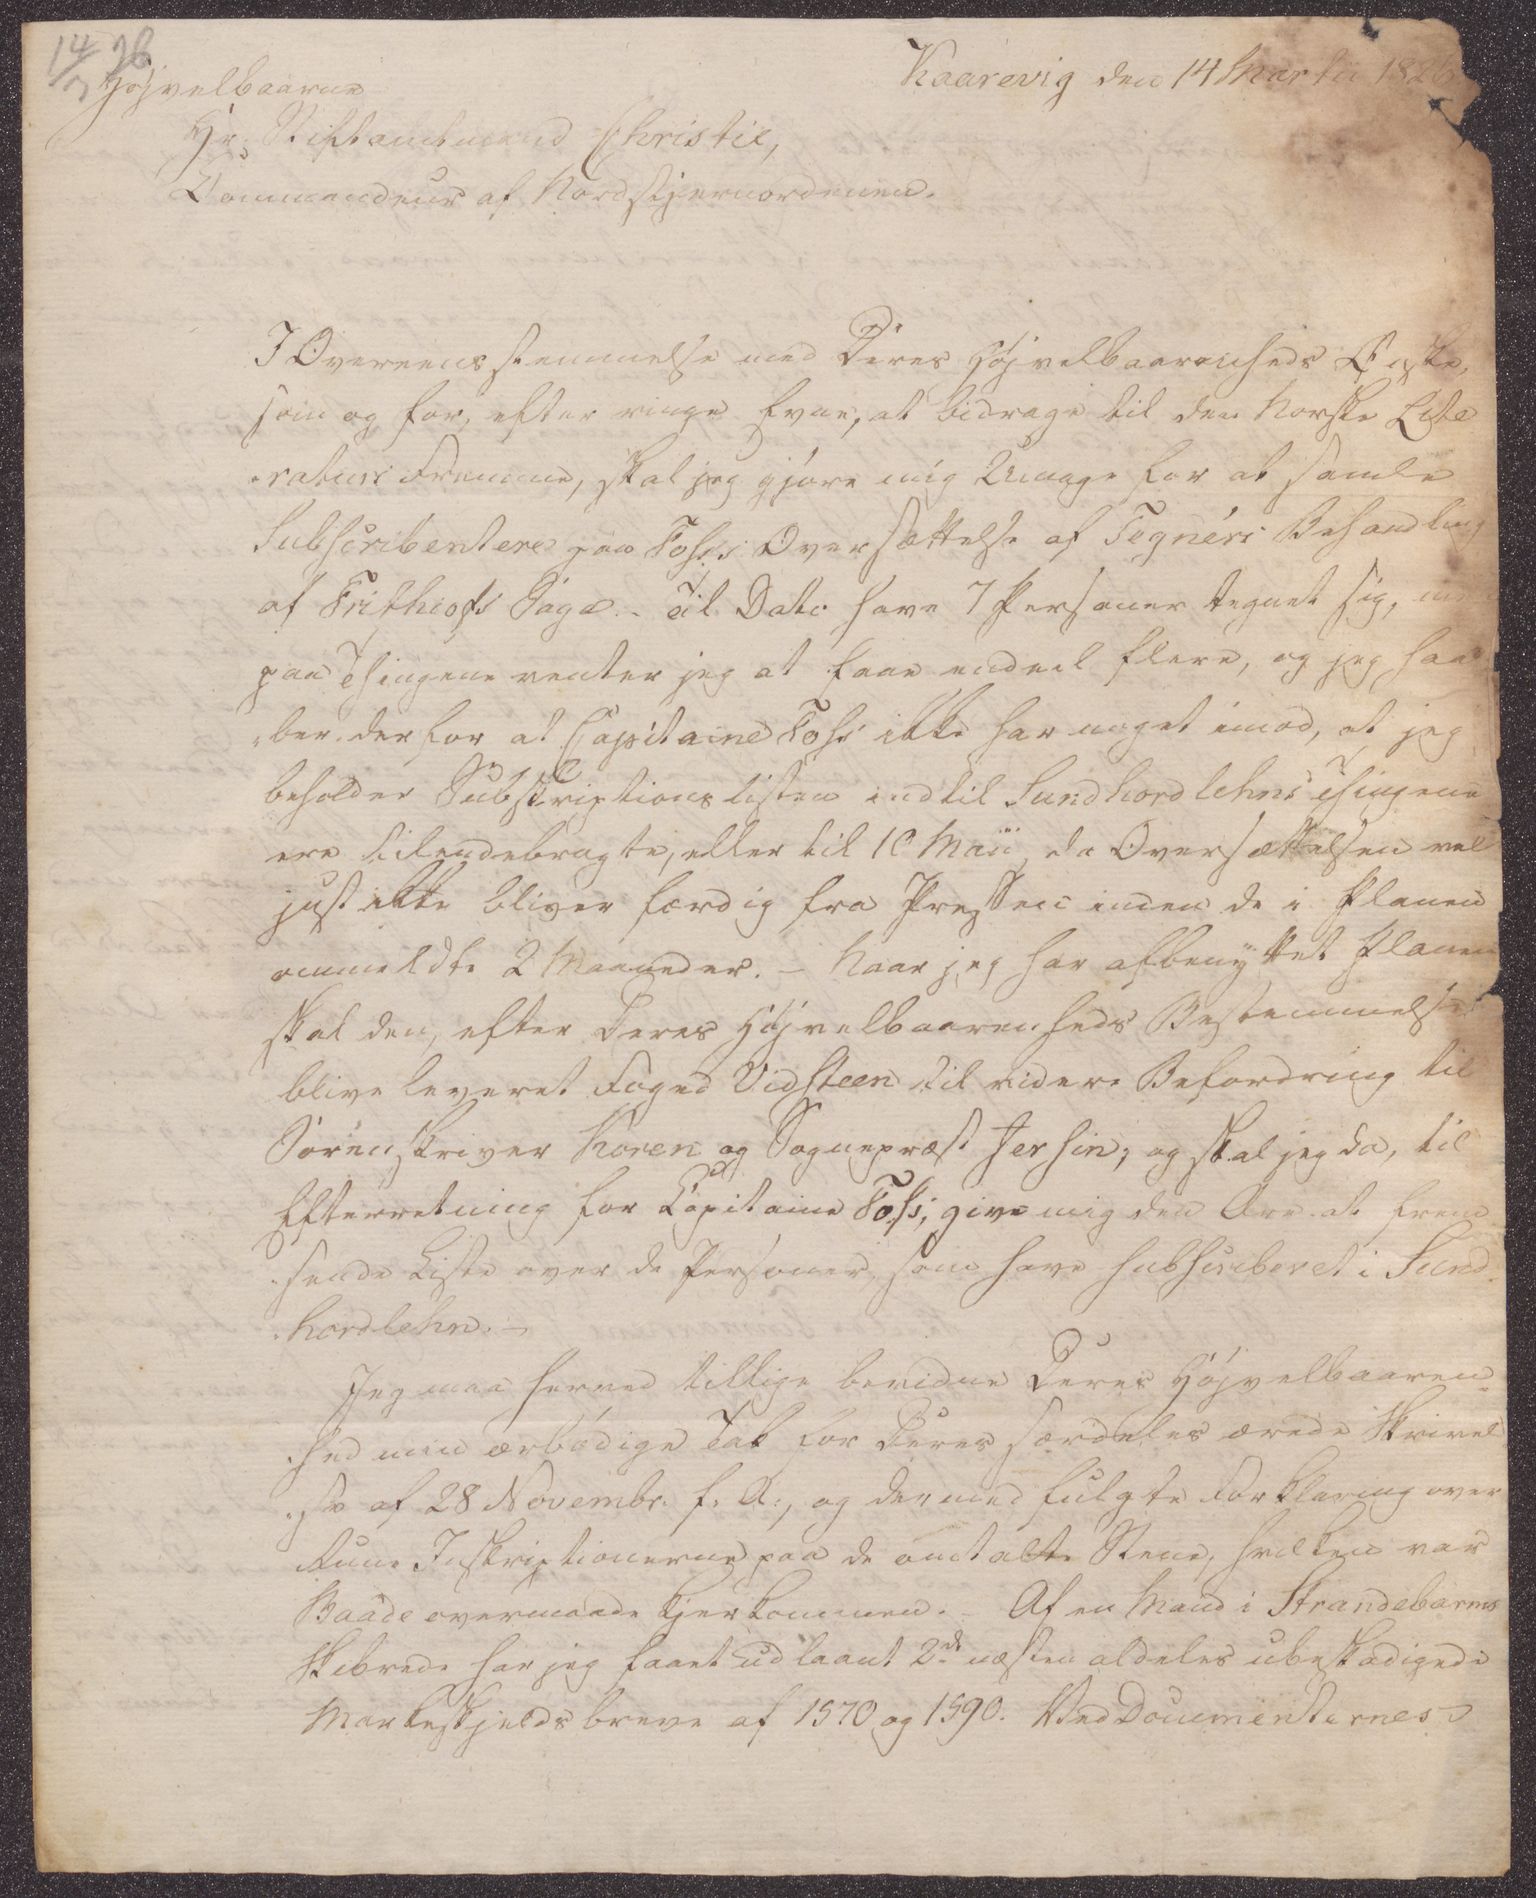 14/3 26
Kaarevig den 14 Martii 1826
Højvelbaarne
Hr. Stiftamtmand Christie,
Commandeur af Nordstjernordenen.
I Overeensstemmelse med Deres Højvelbaarenheds Ønske,
som og for, efter ringe Evne, at bidrage til den Norske Lite
-raturs Fremme, skal jeg gjøre mig Umage for at samle
Subscribentere paa Foss's Oversættelse af Tegnérs Behandling
af Frithiofs Saga. - Til Dato have 7 Personer tegnet sig, men
paa Thingene venter jeg at faae endeel flere, og jeg haa
-ber derfor at Capitaine Foss ikke har noget imod, at jeg
beholder Subskriptionslisten indtil Sundhordlehns Thingene
ere tilendebragte, eller til 10 Maii, da Oversættelsen vel
just ikke bliver færdig fra Pressen inden de i Planen
ommeldte 2 Maaneder. - Naar jeg har afbenyttet Planen
skal den, efter Deres Højvelbaarenheds Bestemmelse
blive leveret Foged Vidsteen til videre Befordring til
Sorenskriver Koren og Sognepræst Jersin; og skal jeg da, til
Efterretning for Capitaine Foss, give mig den Ære at frem
-sende Liste over de Personer, som have subscriberet i Sund
-hordlehn. -
Jeg maa herved tillige bevidne Deres Højvelbaaren-
-hed min ærbødige Tak for Deres særdeles ærede Skrivel
-se af 28 Novembr. f. A., og dermed fulgte Forklaring over
Rune Inskriptionerne paa de omtalte Stene, hvilken var
Baade overmaade kjerkommen. - Af en Mand i Strandebarms
Skibrede har jeg faaet udlaant 2de næsten aldeles ubeskadigede
Markeskjelds breve af 1570 og 1590. Ved Documenternes